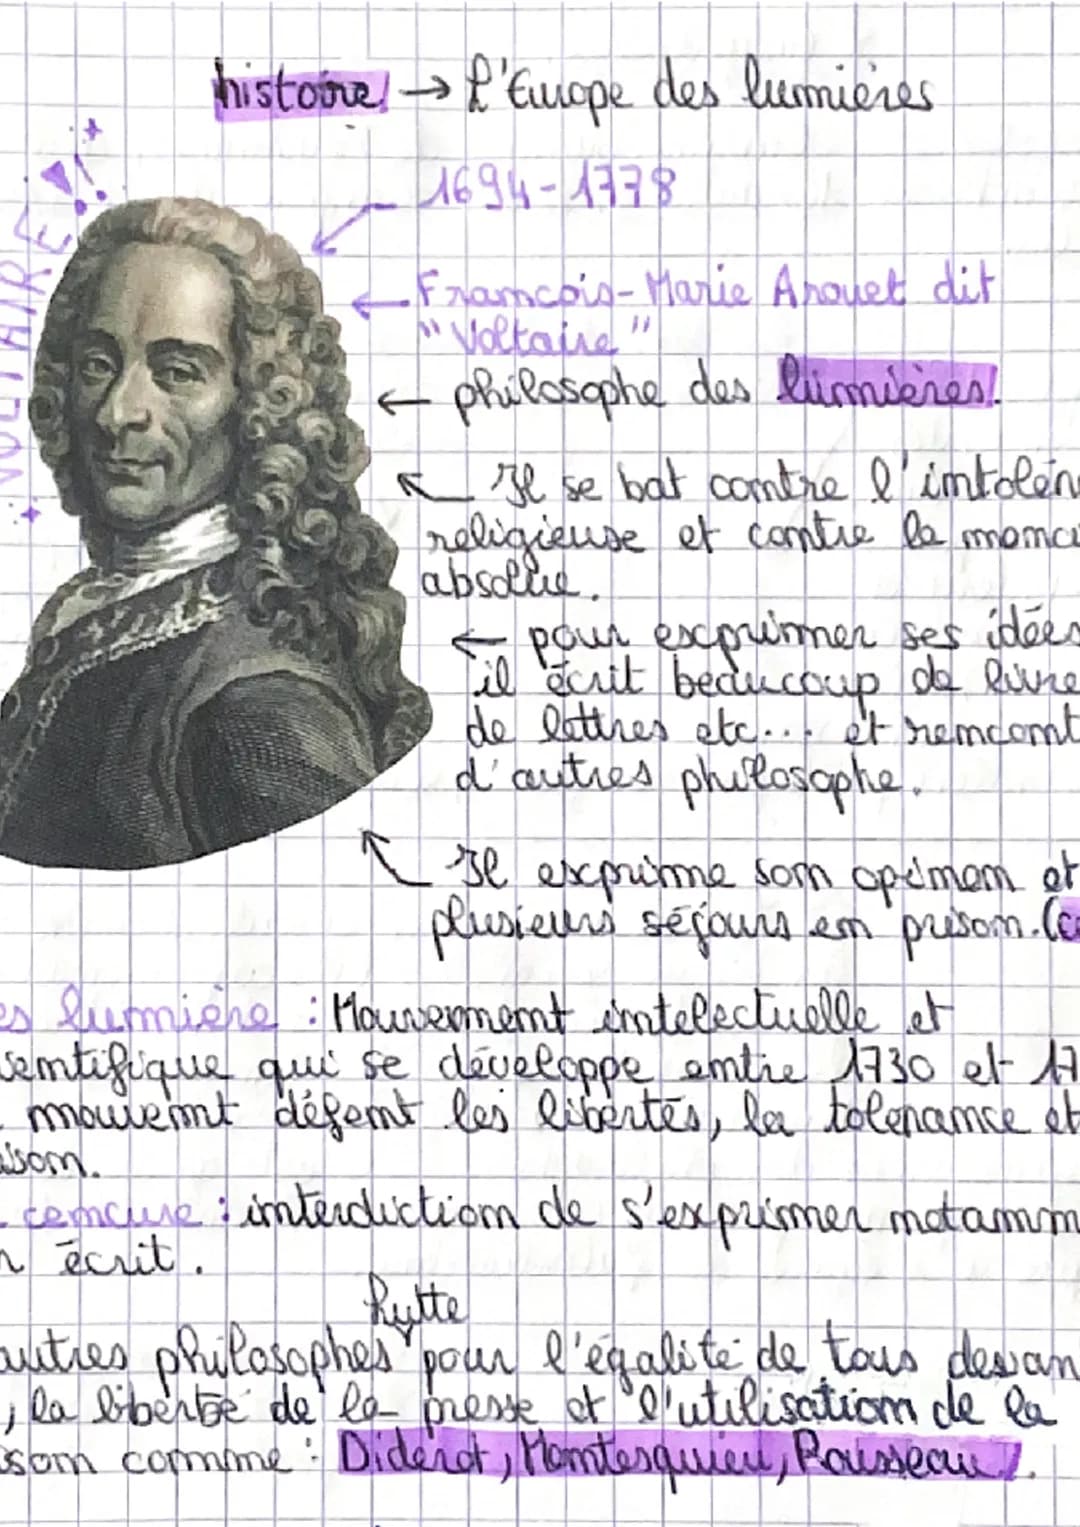 histoire → L'Europe des lumières
VOLTAIRE !
1694-1778
Francois-Marie Arouet dit
"Voltaire"
philosophe des lumières.
Il se bat contre l'intolér
religieuse et contre la monar
absolue.
pour exprimer ses idées
il écrit beaucoup de livre
de lettres etc... et rencont
d'autres philosophe.
Il exprime son opinion et
plusieurs séjours en prison. (ce
es lumière : Mouvement intelectuelle et
ientifique qui se développe entre 1730 et 17
mouvemt défent les libertés, la tolérance et
aison.
cencure : interdiction de s'exprimer notamm
écrit.
lutte
autres philosophes pour l'égalité de tous devan
, la liberté de la presse et l'utilisation de la
ison comme : Diderot, Montesquieu, Rousseau.